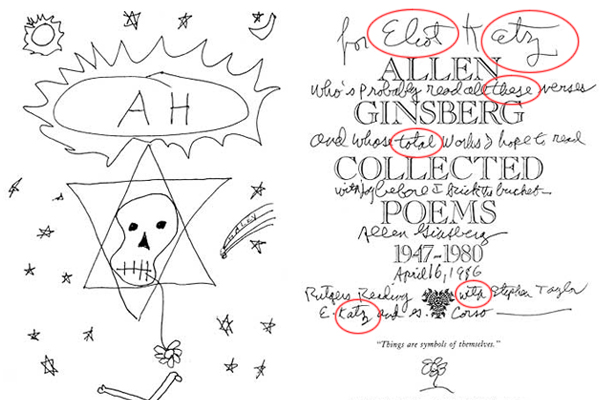 AH
for Eliot Katz
ALLEN
who's probably read all these verses
GINSBERG
and whose total works I hope to read
COLLECTED
with joy before I kick the bucket—
POEMS
Allen Ginsberg
1947-1980
April 16, 1986
Rutgers Reading with Stephen Taylor
E. Katz and G. Corso
"Things are symbols of themselves."